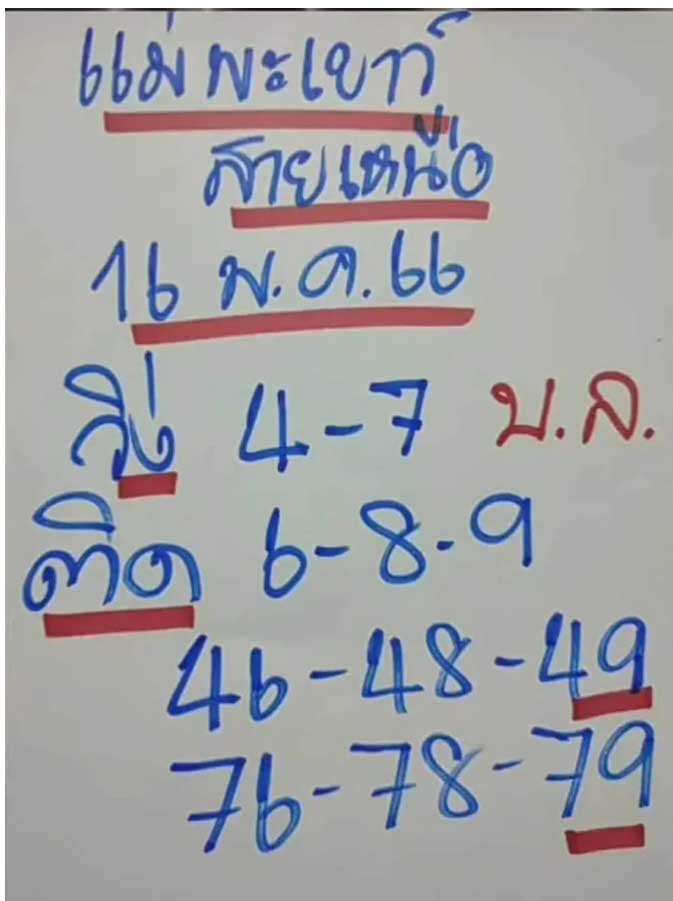 แม่พะเยาว์
สายเหนือ
16 ม.ค.66
วิ่ง 4-7 บ.ล.
ติด 6-8-9
46-48-49
76-78-79